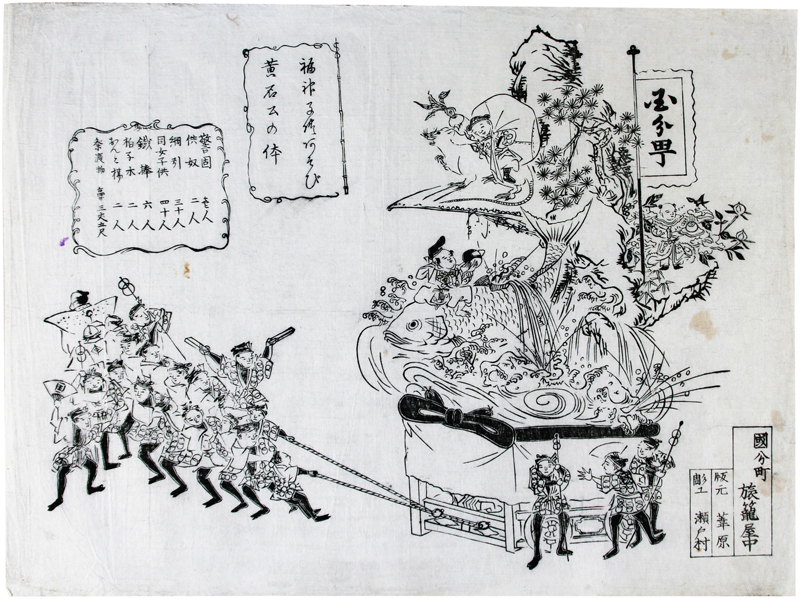 國分町
福神子供阿そび
黄石公の体
警固 七人
供奴 二人
綱引 三十人
同女子供 四十人
鐵棒 六人
拍子木 二人
あんと樽 二人
惣渡物 高三丈五尺
國分町 旅籠屋中
版元 華原
彫工 瀬戸村